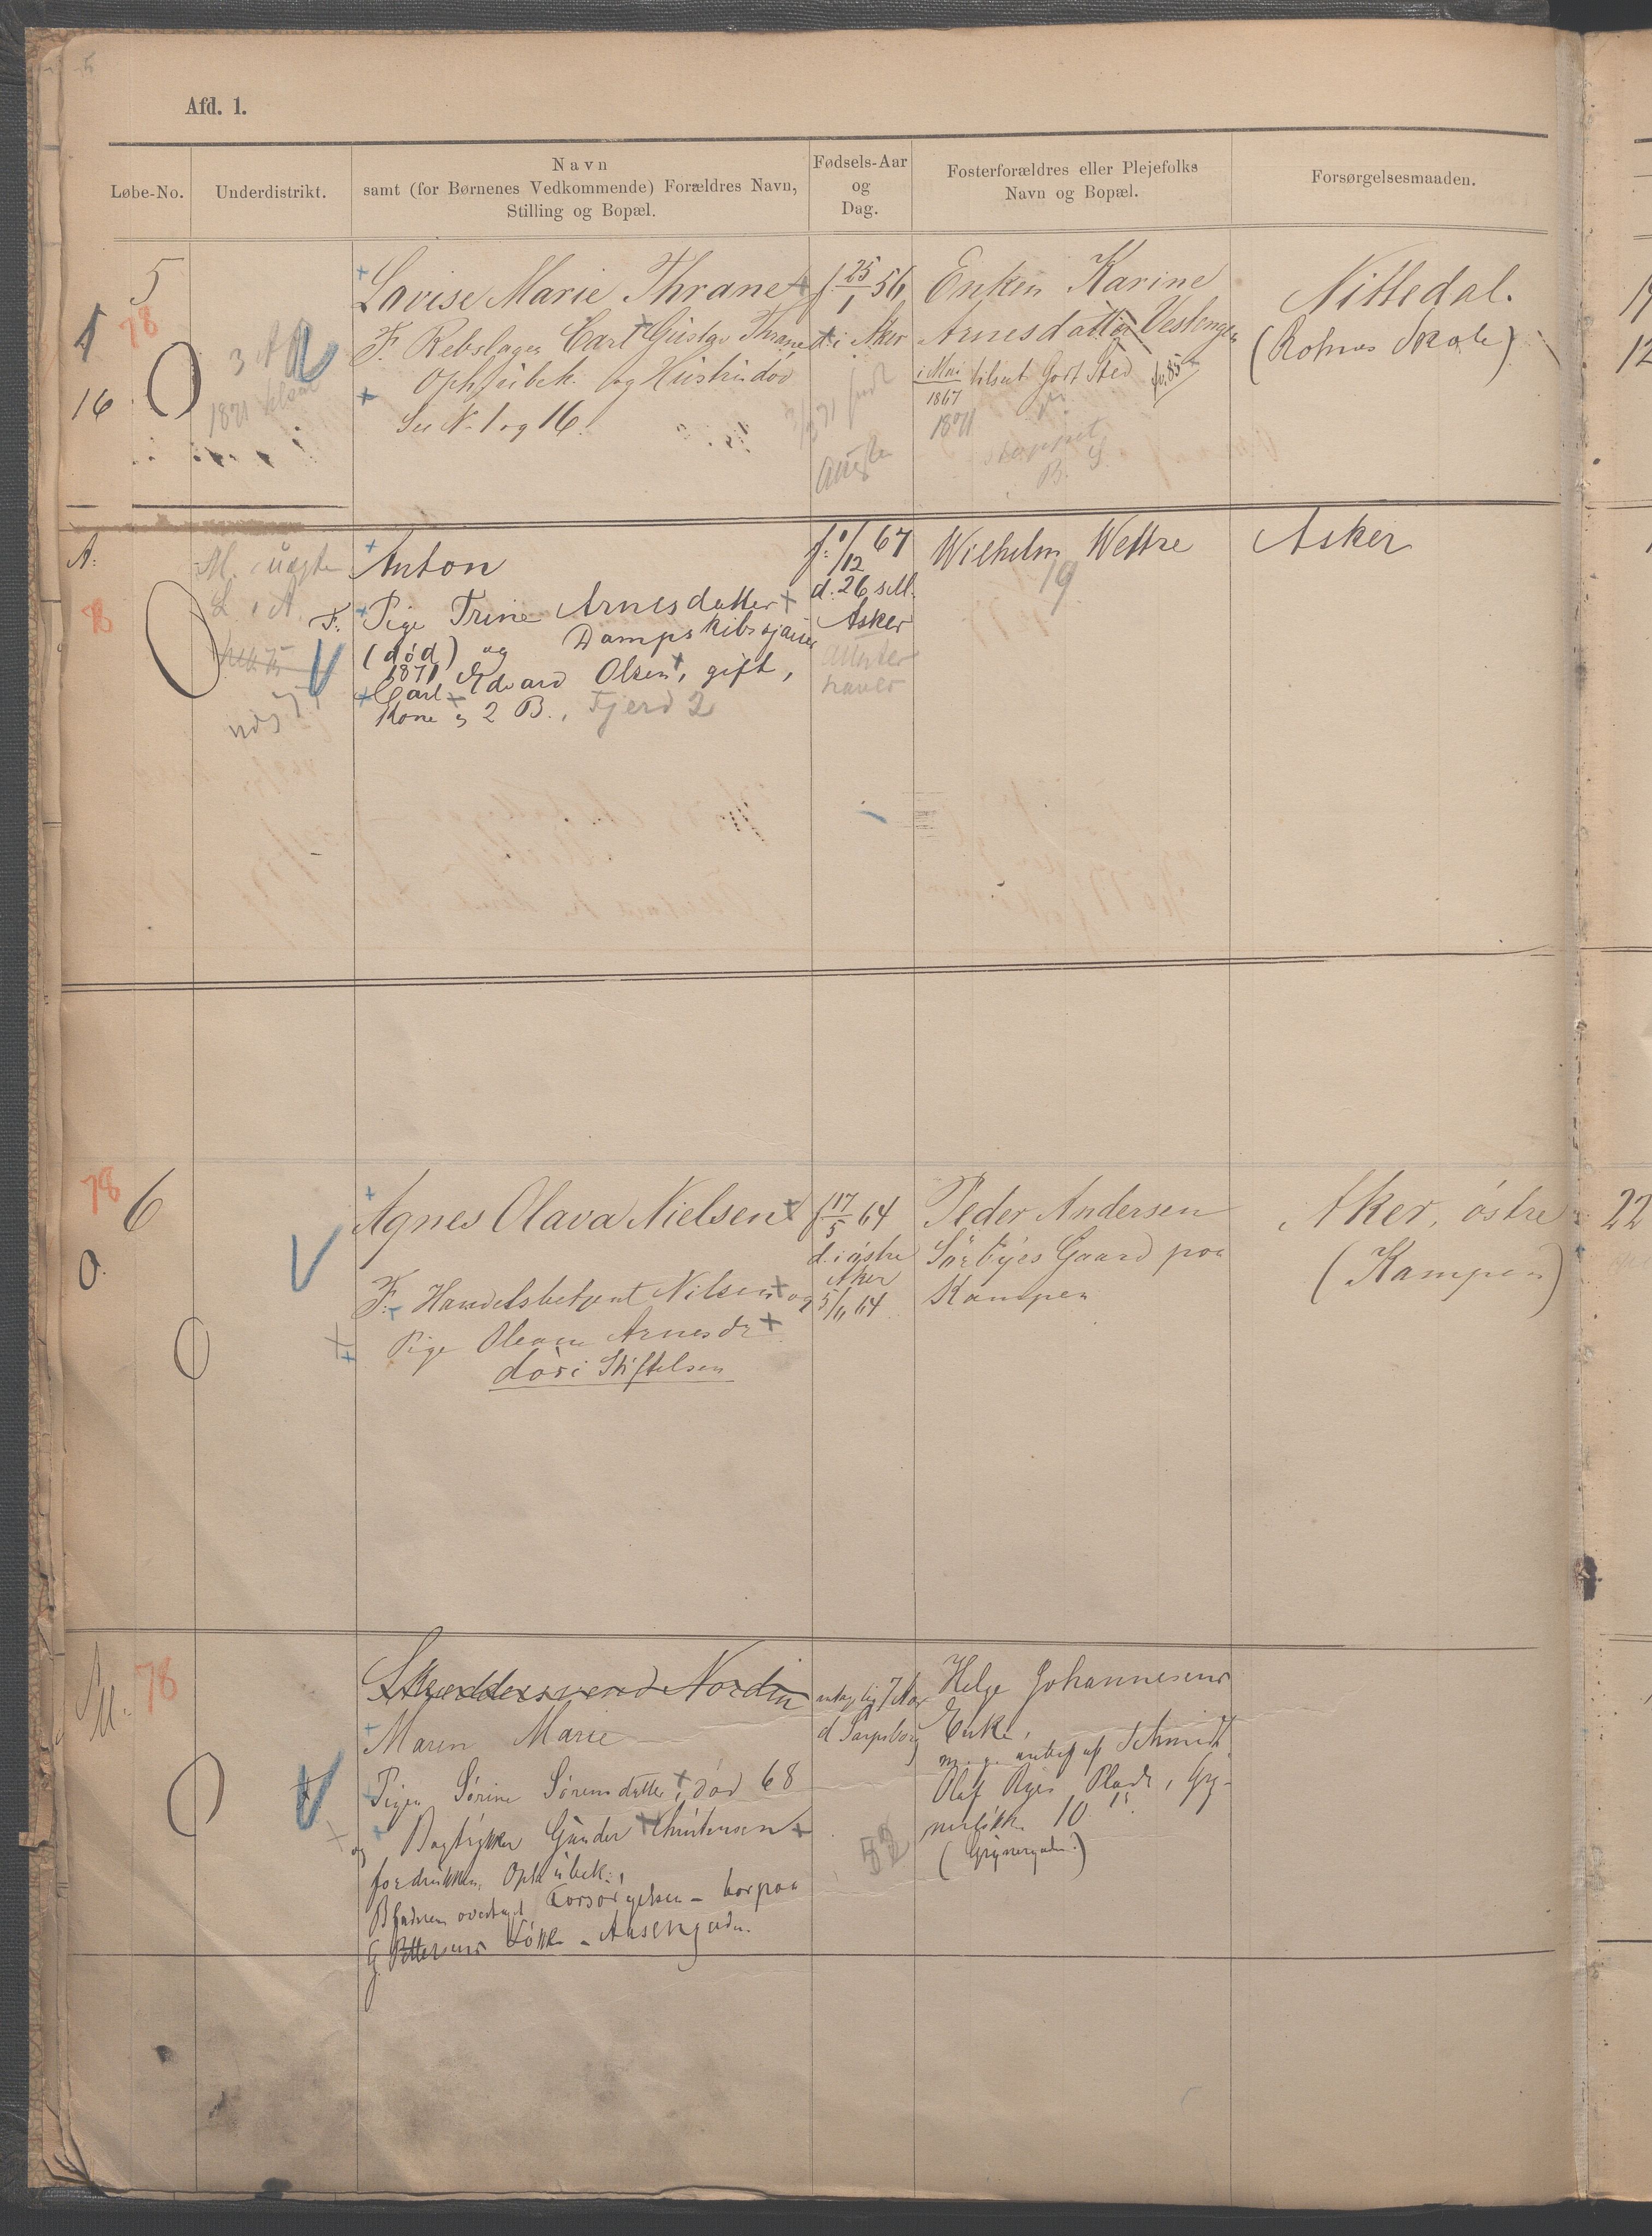 Afd. 1.
Løbe-No.
Underdistrikt.
Navn
samt (for Børnenes Vedkommende) Forældres Navn,
Stilling og Bopæl.
Fødsels-Aar
og
Dag.
Fosterforældres eller Plejefolks
Navn og Bopæl.
Forsørgelsesmaaden.
5
78
16
3 A
1871
Lovise Marie Thrane
F. Rebslager Carl Gustav Thrane
Oph. ubek. og Hustru død
Se N. 1 og 16.
f. 25/1 56
d. i Aker
Enken Karine
Arnesdatter Vestengen
i Mai 1867 tilsat Godt Sted
1871
Nittedal.
(Rotnes Skole)
A.
M. uægte
L. A.
Anton
F. Pige Trine Arnesdatter
(død) og Dampskibs
1871 Carl Edvard Olsen, gift,
Kone og 2 B., Fjerd 2
f. 1/12 67
d. 26 s.M.
Asker
Wilhelm Wettre
19
Asker
78
6
0.
Agnes Olava Nielsen
F. Handelsbetjent Nilsen og
Pige Oleane Arnesdr
død i Stiftelsen
f 17/5 64
d. i østre
Aker
5/6 64
Peder Andersen
Sørbyes Gaard paa
Kampen
Aker, østre
(Kampen)
22
M.
78
Skreddersvend Nordin
Maren Marie
Pigen Sørine Sørensdatter, død 68
og Bogtrykker Gunder Christensen
fordrukken, Oph. ubek.,
B.faderen overtaget Forsørgelsen - bor paa
G. Pettersens Løkke - Aasengaden.
d Sarpsborg
Helge Johannesens
Enke,
Schmidt
Olaf Ryes Plads, Gry-
nerløkk. 10
(Grynergaden)